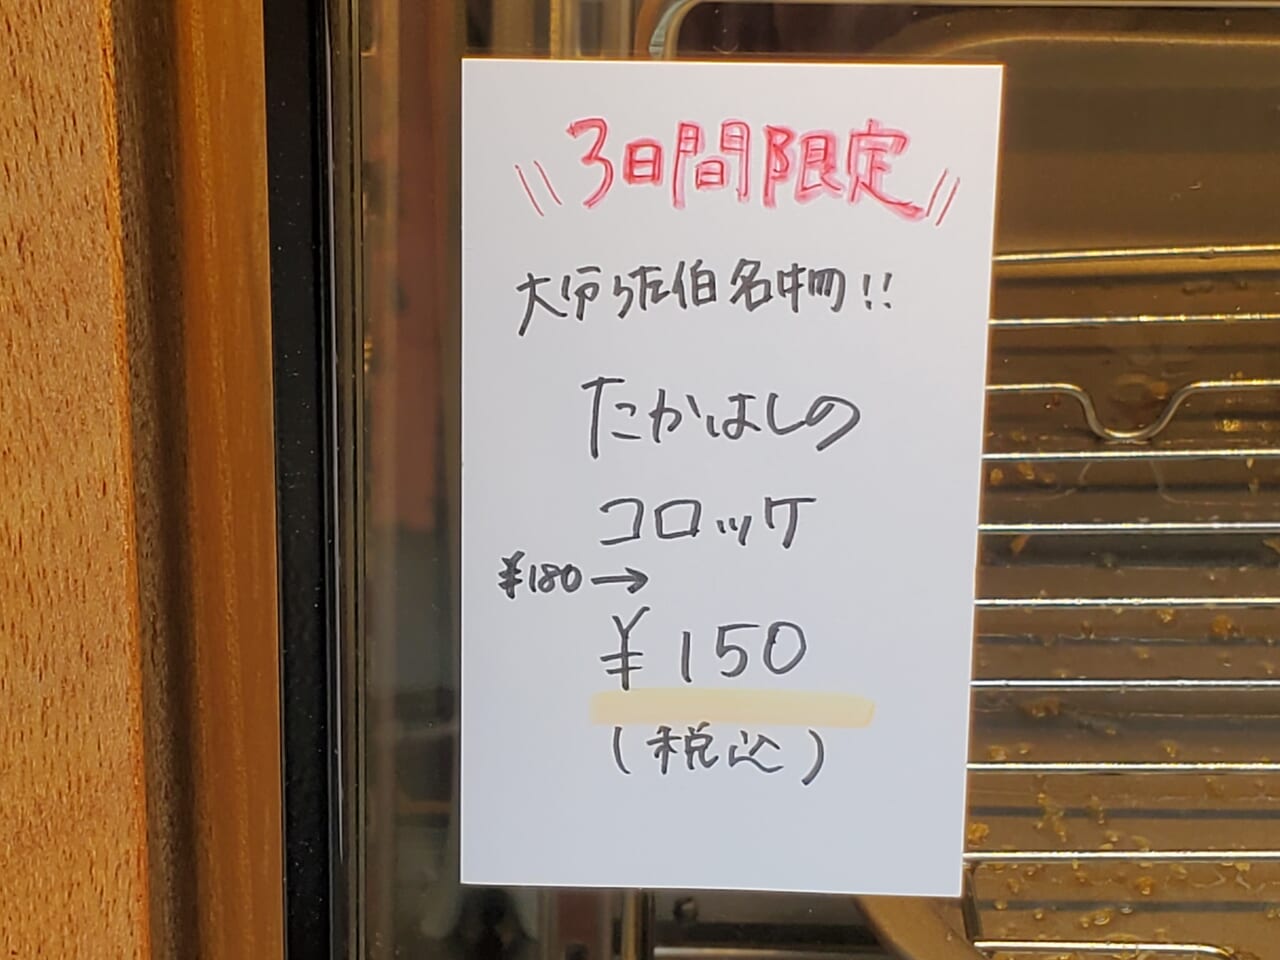 \\3日間限定//
大分佐伯名物!!
たかはしの
コロッケ
¥180→
¥150
(税込)